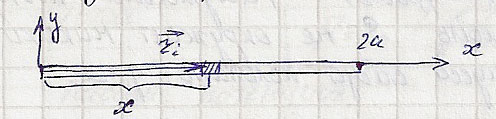 y
r⃗ᵢ 2a x
x